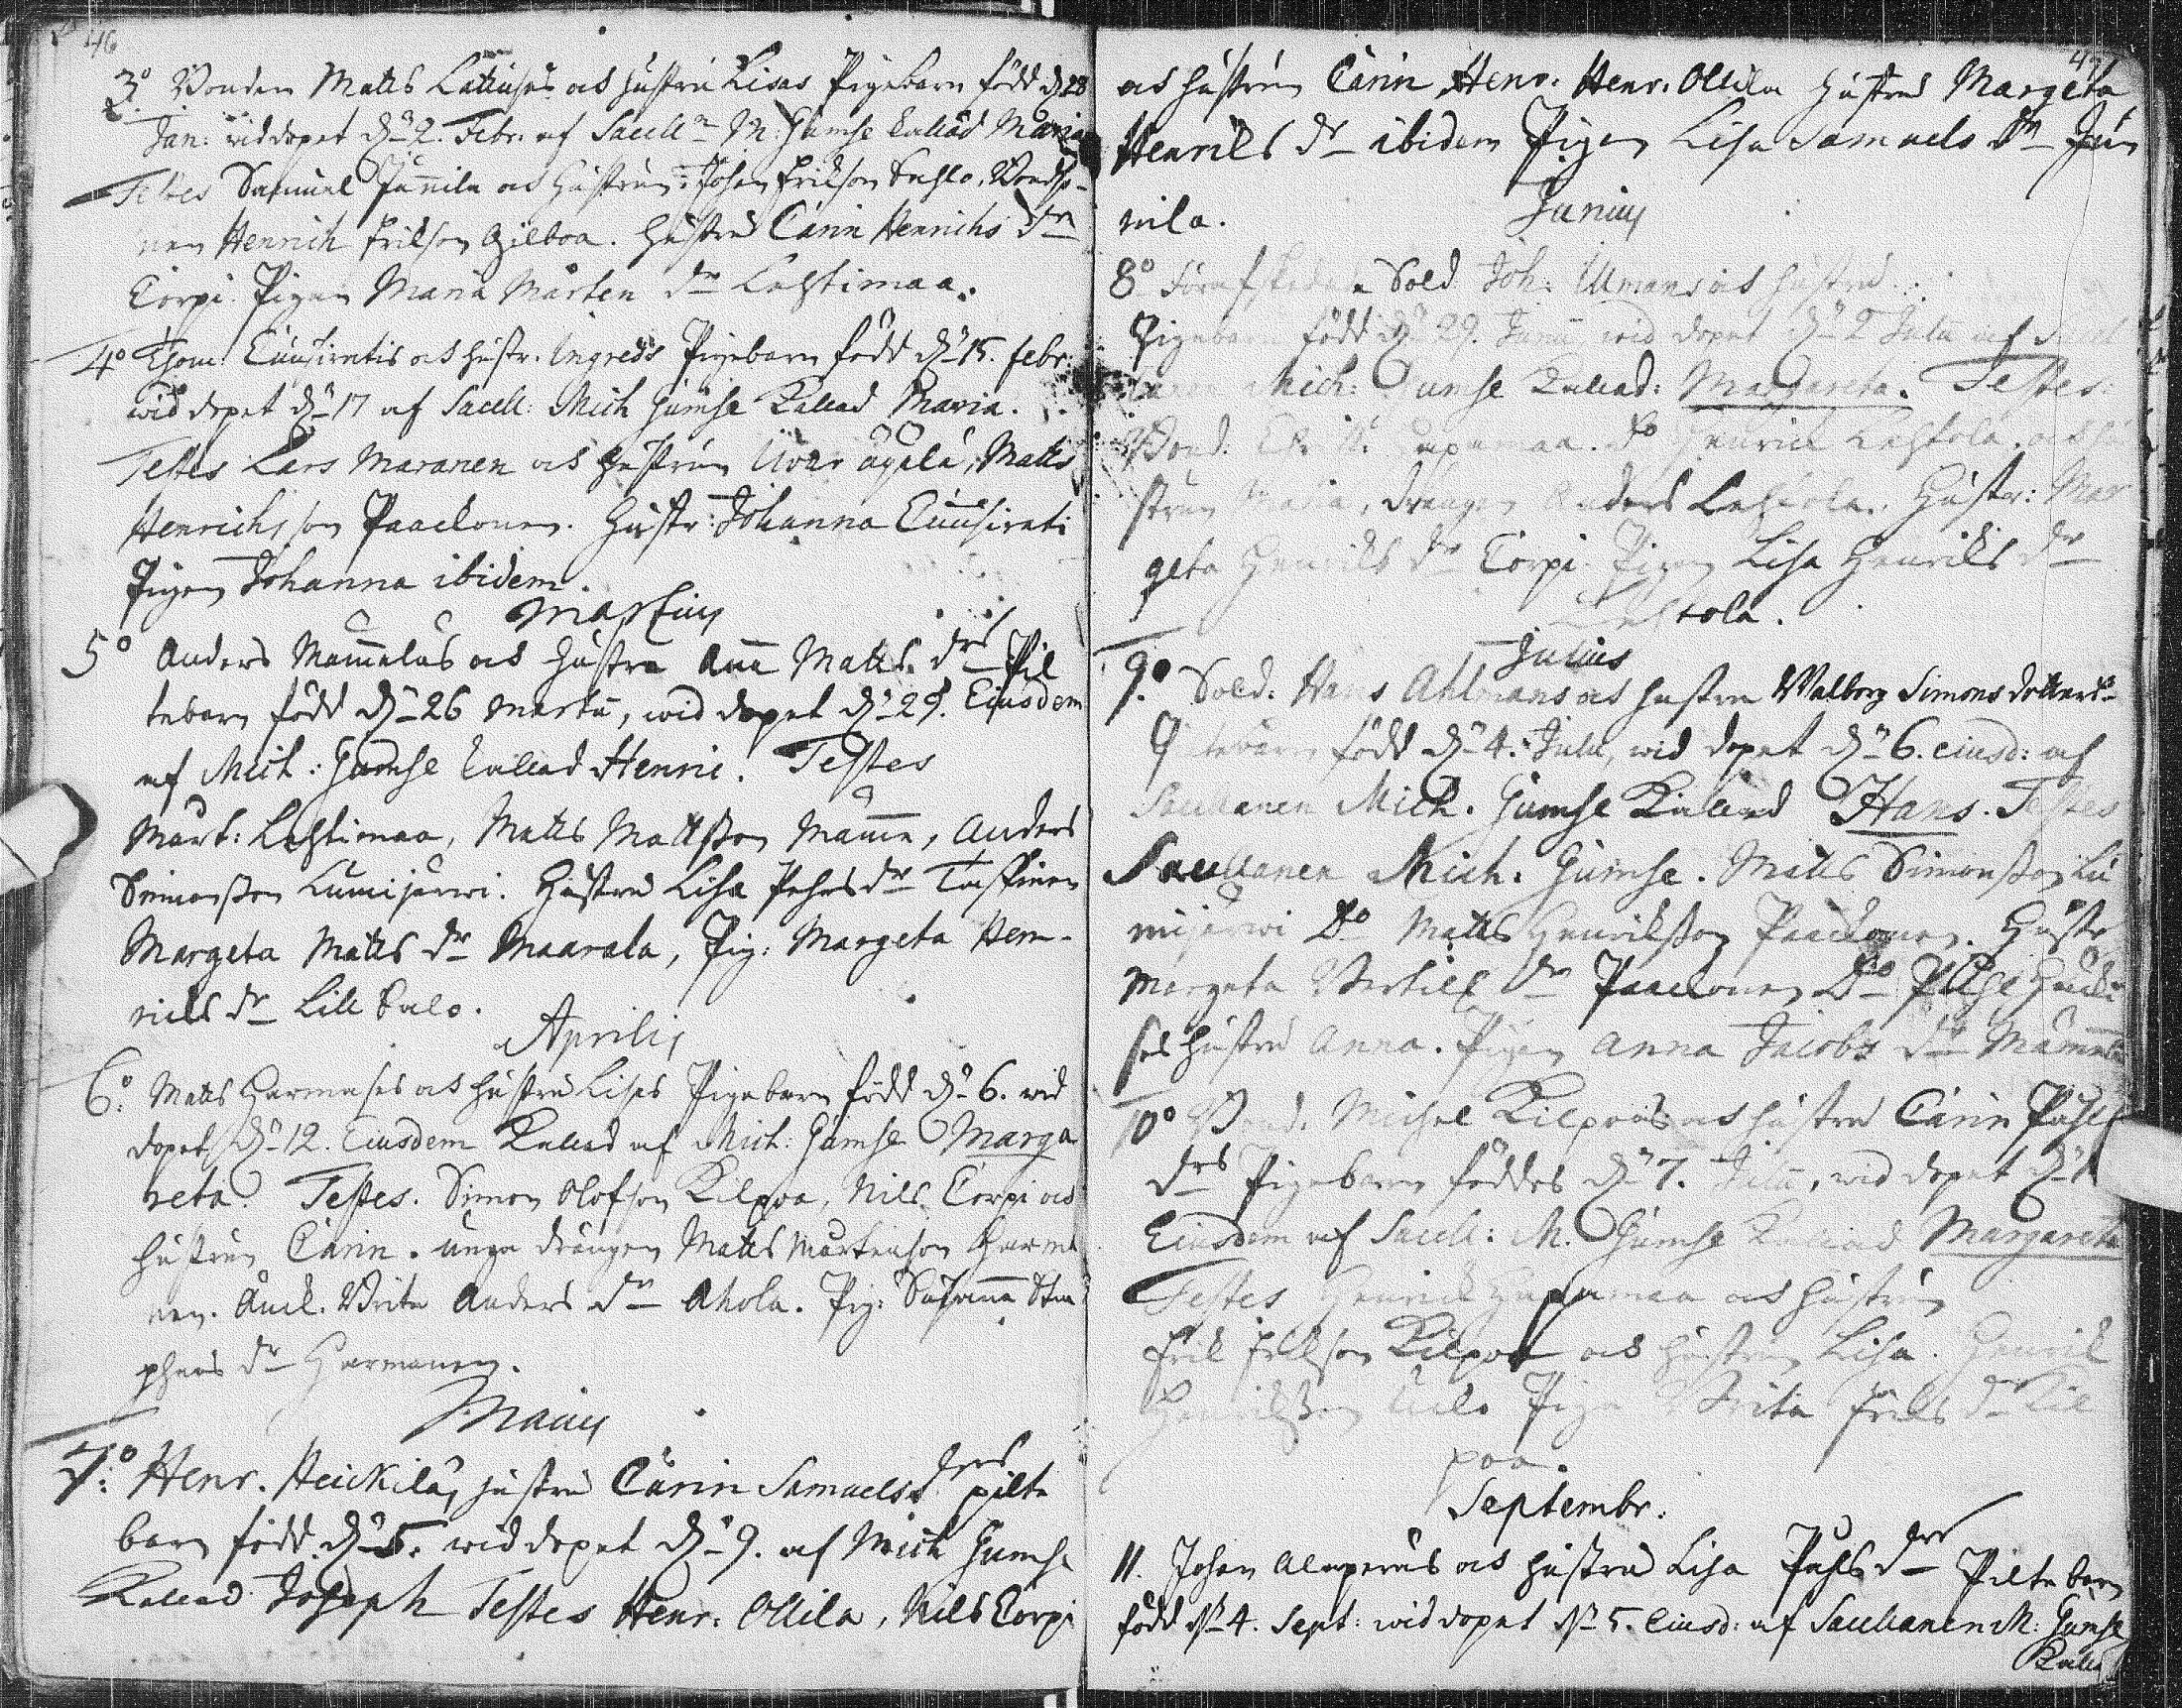 46
3o Bonden Matts Lattuses och hustru Lisas Pigebarn född dn 28
Jan: wid dopet dn 2. Febr: af Sacelln M: Gumse kallad Maria
Testes Samuel Junnila och hustrun: Johan Erikson Sahlo, Bondso-
nen Henrich Erikson Kilboa. Hustru Carin Henrichs dr
Corpi. Pigan Maria Mårten dr Lachtimaa.
4o Thom: Cuusiratis och hustr. Ingreds Pigebarn född dn 15. febr:
wid dopet dn 17 af Sacell: Mich Gumse Kallad Maria.
Testes Lars Maranen och hustrun Matts
Henrichsson Paackonen. Hustr: Johanna Cuusirati
Pigan Johanna ibidem.
Martius
5o Anders Mammalas och hustru Anna Matts drs Pil
tebarn född dn 26 Martii, wid dopet dn 29. Eiusdem
af Mich: Gumse kallad Henric. Testes
Mårt: Lachtimaa, Matts Mattsson Mamma, Anders
Simonsson Lumijärwi. Hustru Lisa Pehrs dr
Margeta Matts dr Maarala, Pig: Margeta Hen-
riks dr Lill Salo.
Aprilis
6o: Matts Harmases och hustru Lises Pigebarn född dn 6. wid
dopet dn 12. Eiusdem Kallad af Mich: Gumse Marga
reta. Testes. Simon Olofson Kilpoa, Nils Corpi och
hustrun Carin. unga drängen Matts Mårtenson Harma
nen. Änck. Brita Anders dr Ahola. Pig: Susanna Sta
phans dr Harmanen.
Maius
7o: Henr. Heickilas hustru Carin Samuels drs pilte
barn född dn 5. wid dopet dn 9. af Mich Gumse
Kallad Joseph Testes Henr: Ollila, Nils Corpi
och hustrun Carin, Henr. Henr. Ollila hustru Margeta
Henriks dr ibidem Pigan Lisa Samuels dr Jun
nila.
Junius
8o Sold. Joh: Ulmans och hustru
Pigebarn född dn 29. Junii wid dopet dn 2 Julii af
Mich: Gumse Kallad: Margareta. Testes:
Bond. do Henrich Lachtola, och hu
strun Maria, drängen Anders Lachtola. Hustr: Mar
geta Henriks dr Corpi. Pigan Lisa Henriks dr
Lachtola.
Julius
9o Sold. Hans Ahlmans och hustru Walborg Simonsdotters
Piltebarn född dn 4. Julii, wid dopet dn 6. eiusd: af
Sacellanen Mich. Gumse Kallad Hans. Testes
Sacellanen Mich. Gumse. Matts Simonsson Lu
mijärwi Do Matts Henriksson Paackonen. Hustr
Margeta Bertils dr Paackonen Do
hustru Anna. Pigan Anna Jacobs dr Mamma
10o Bond. Michel Kilpoas och hustru Carin Påhls
drs Pigebarn föddes dn 7. Julii, wid dopet dn
Eiusdem af Sacell: M. Gumse Kallad Margareta
Testes Henrich och hustrun
Erik Erikson Kilpoa och hustrun Lisa. Henrik
Henriksson Pigan Brita Eriks dr Kil
poa.
Septembr:
11. Johan Alaperas och hustru Lisa Påhls drs Pilte barn
född dn 4. Sept: wid dopet dn 5. Eiusd: af Sacellanen M: Gumse
Kallad